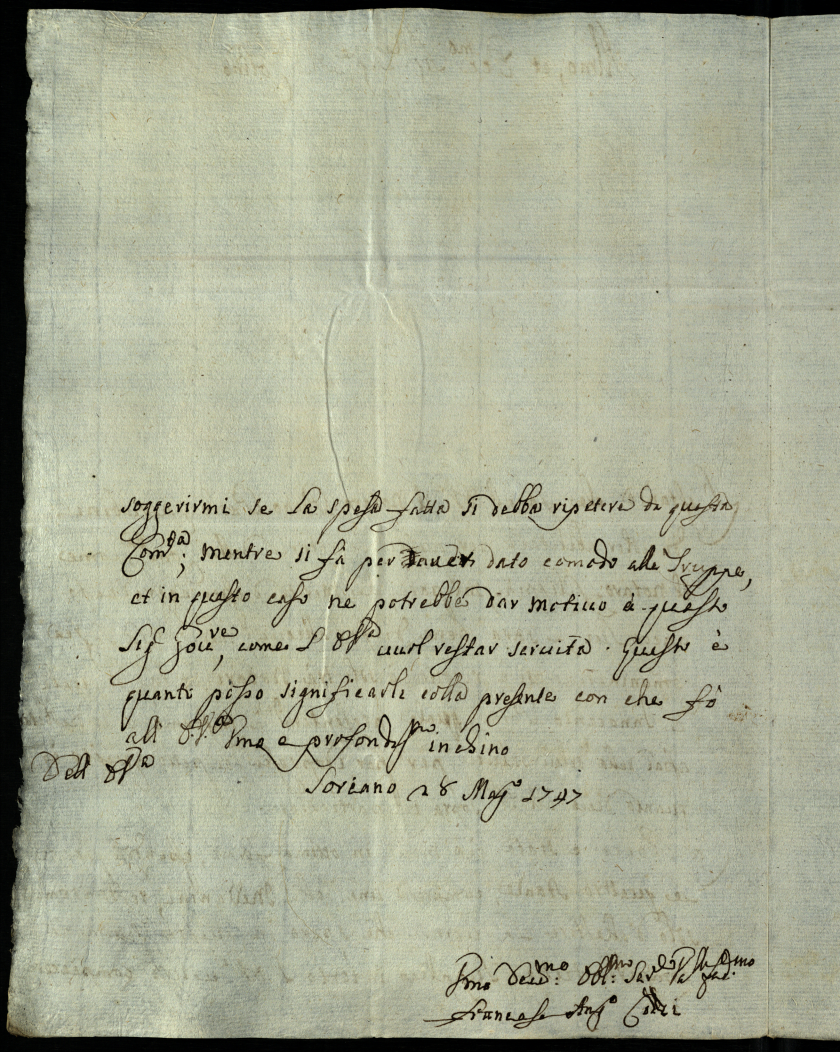 soggerirmi se la spesa fatta si debba ripetere da questa
Com.tà; mentre si fà per haver dato comodo alle Truppe,
et in questo caso ne potrebbe dar motiuo à questo
Sig.r Gou.re, come l' uuol restar seruita. Questo è
quanto posso significarle colla presente con che fò
all' e profond.mo inchino
Dell'
Soriano 28 Mag.o 1747
Obbl.mo
Francesco Ang.o